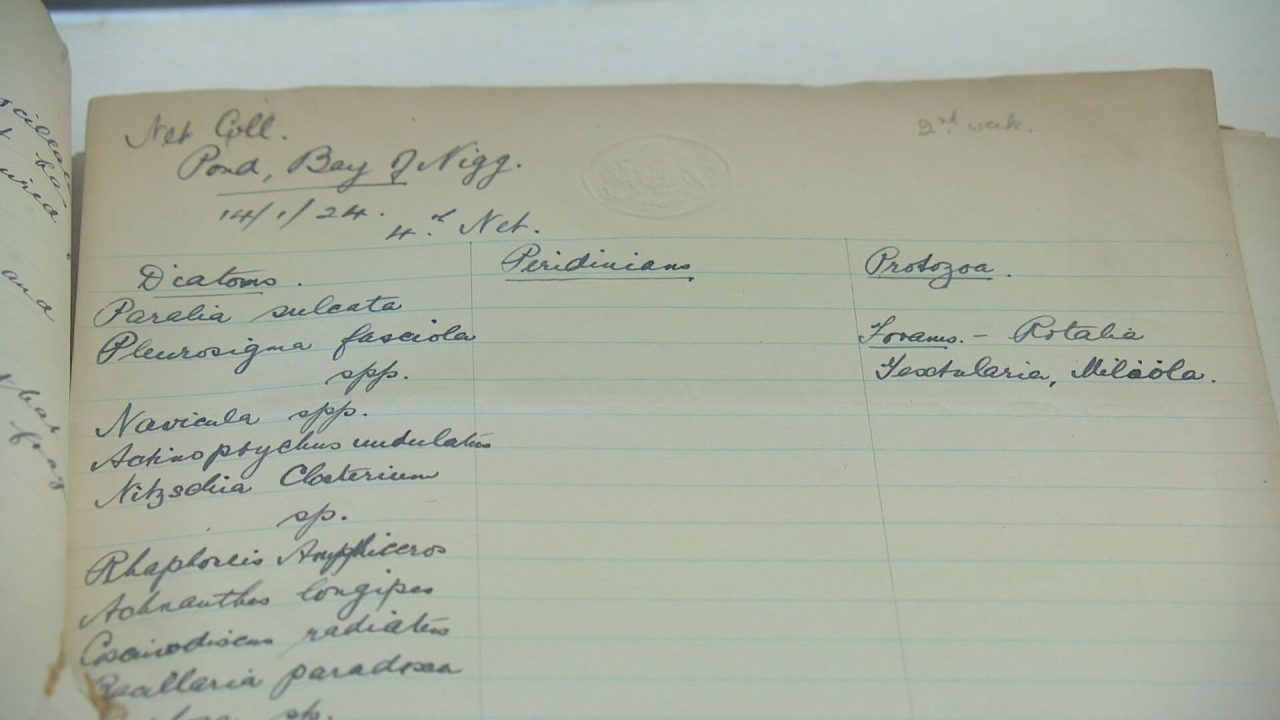 Net Coll.
2nd week.
Pond, Bay of Nigg.
14/1/24.
4.d Net.
Diatoms.
Paralia sulcata
Pleurosigma fasciola
spp.
Navicula spp.
Actinoptychus undulatus
Nitzschia Closterium
sp.
Rhaphoneis Amphiceros
Achnanthes longipes
Coscinodiscus radiatus
Bacillaria paradoxa
sp.
Peridinians
Protozoa.
Forams. - Rotalia
Textularia, Miliola.
and